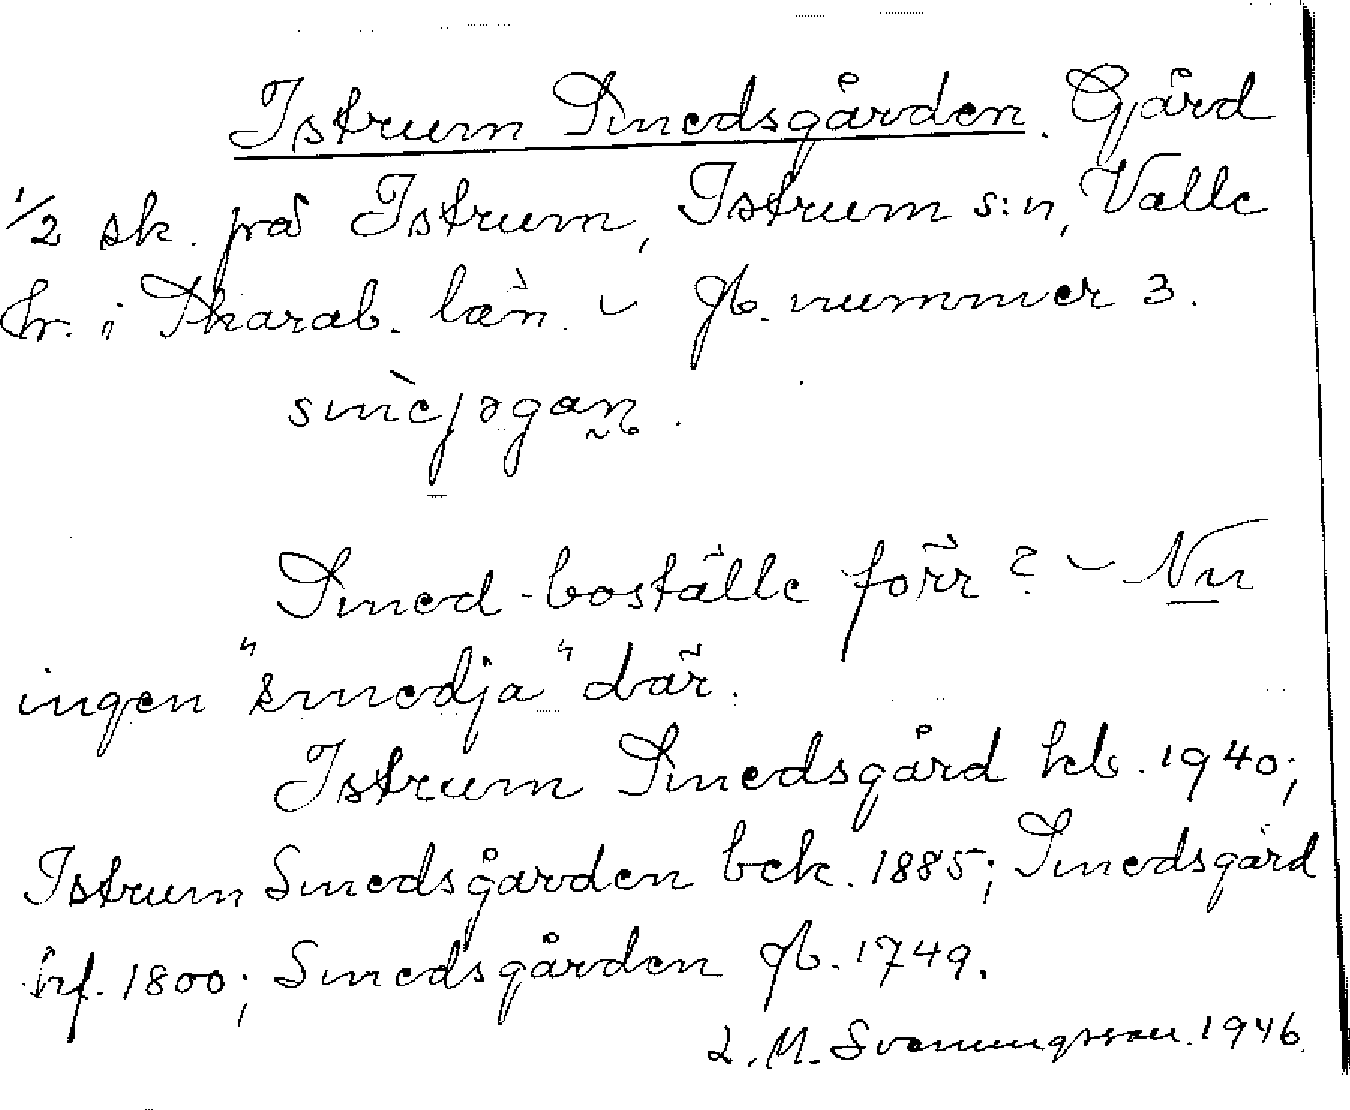 Istrum Smedsgården. Gård
1/2 sk. på Istrum, Istrum s:n, Valle
hr. i Skarab. län. – jb. nummer 3.
smèjəgaṉ.
Smed-boställe förr? – Nu
ingen "smedja" där.
Istrum Smedsgård hkb. 1940;
Istrum Smedsgården bek. 1885; Smedsgård
hf. 1800; Smedsgården jb. 1749.
L. M. Svenungsson. 1946